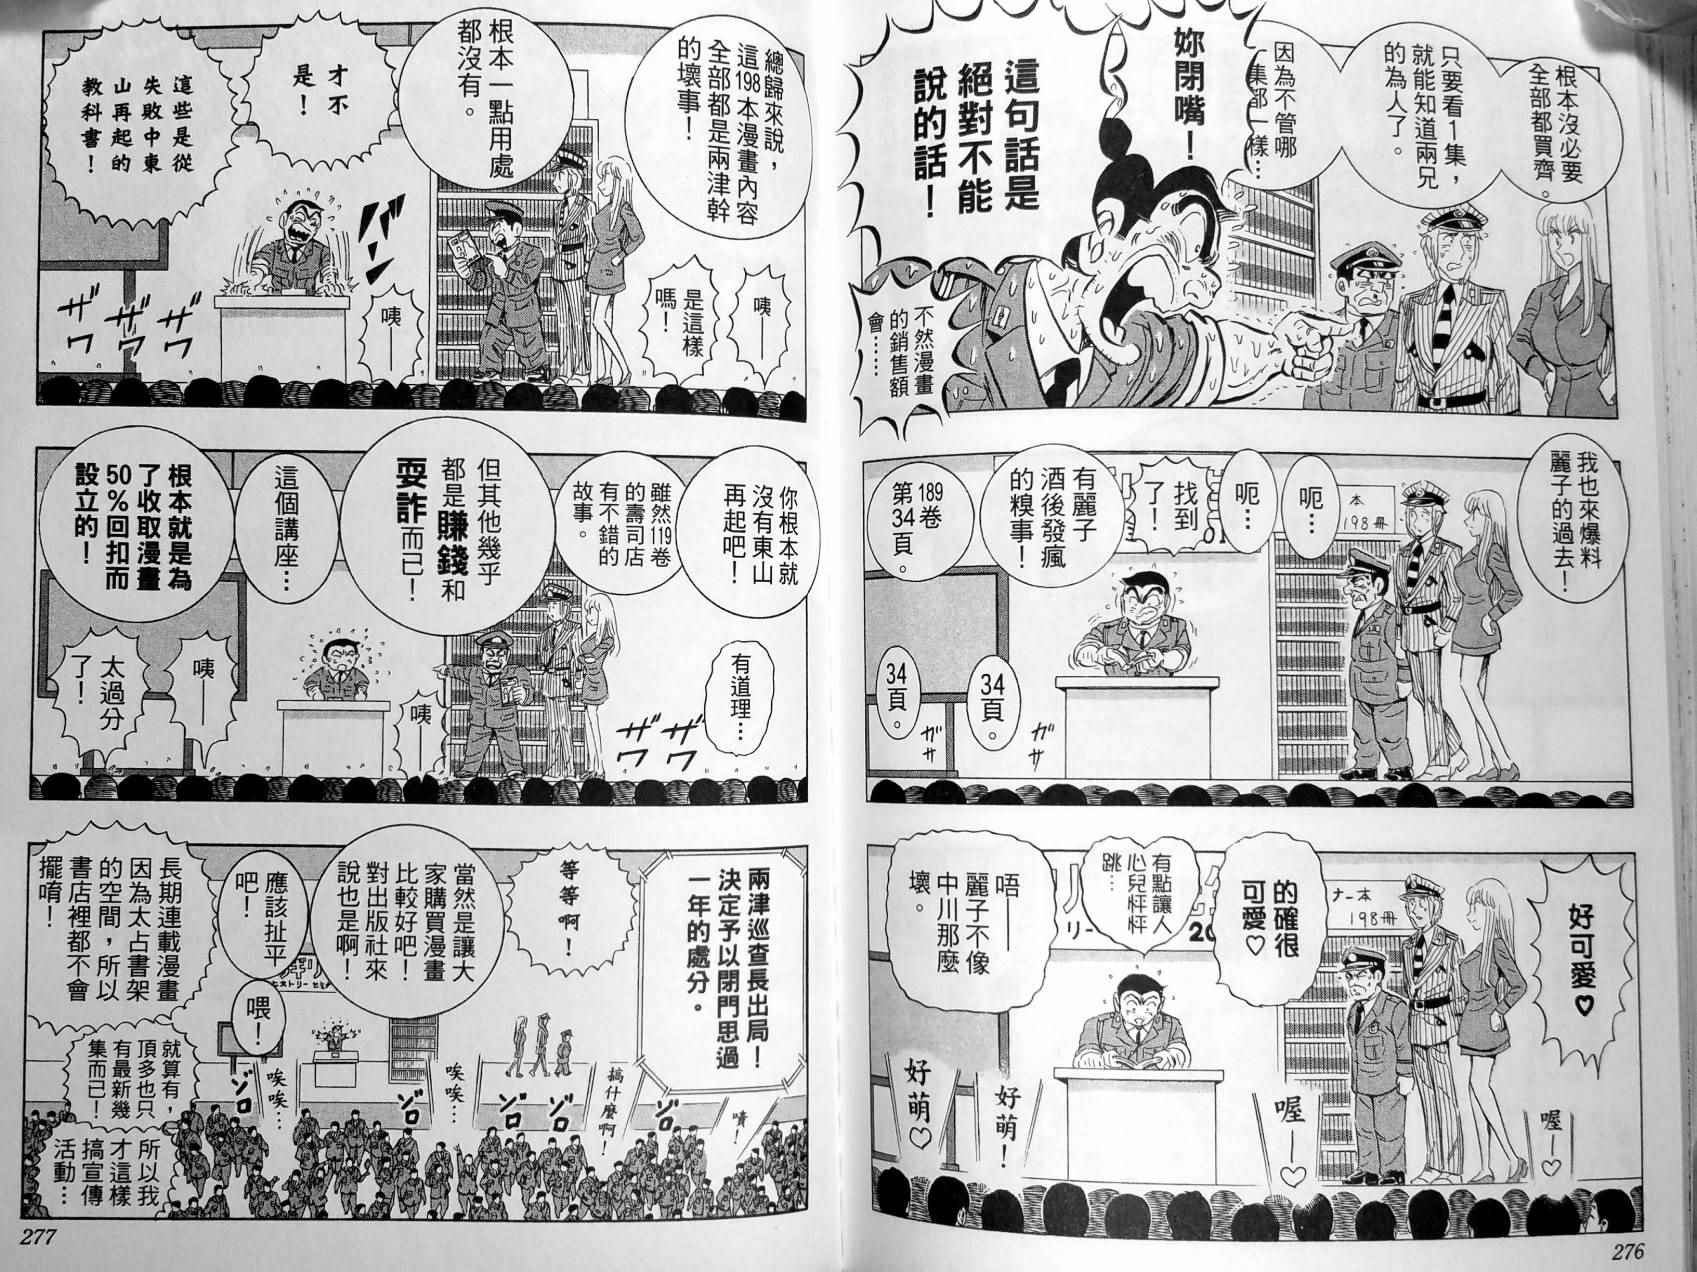 根本沒必要
全部都買齊。
只要看1集，
就能知道兩兄
的為人了。
因為不管哪
一集都一樣…
妳閉嘴！
這句話是
絕對不能
說的話！
不然漫畫
的銷售額
會……
我也來爆料
麗子的過去！
本
198冊
呃…
呃…
找到
了！
有麗子
酒後發瘋
的糗事！
第189卷
34頁。
34
頁。
34
頁。
ガサ
ガサ
好可愛♥
ナー本
198冊
的確很
可愛♡
有點讓人
心兒怦怦
跳…
唔——
麗子不像
中川那麼
壞。
リー
20
喔—♡
喔—♡
好萌！
好萌♡
276
總歸來說，
這198本漫畫內容
全部都是兩津幹
的壞事！
根本一點用處
都沒有。
才不
是！
這些是從
失敗中東
山再起的
教科書！
バン
咦——
是這樣
嗎！
咦——
ザワ
ザワ
ザワ
你根本就
沒有東山
再起吧！
雖然119卷
的壽司店
有不錯的
故事。
但其他幾乎
都是賺錢和
耍詐而已！
這個講座…
根本就是為
了收取漫畫
50%回扣而
設立的！
有道理…
ザワ
ザワ
咦——
咦——
太過分
了！
兩津巡查長出局！
決定予以閉門思過
一年的處分。
等等啊！
當然是讓大
家購買漫畫
比較好吧！
對出版社來
說也是啊！
應該扯平
吧！
喂！
長期連載漫畫
因為太占書架
的空間，所以
書店裡都不會
擺唷！
就算有，
頂多也只
有最新幾
集而已！
所以我
才這樣
搞宣傳
活動…
ギリ
ヒストリー
嘖！
ゾロ
搞什麼啊！
ゾロ
唉唉…
ゾロ
唉唉…
ゾロ
277